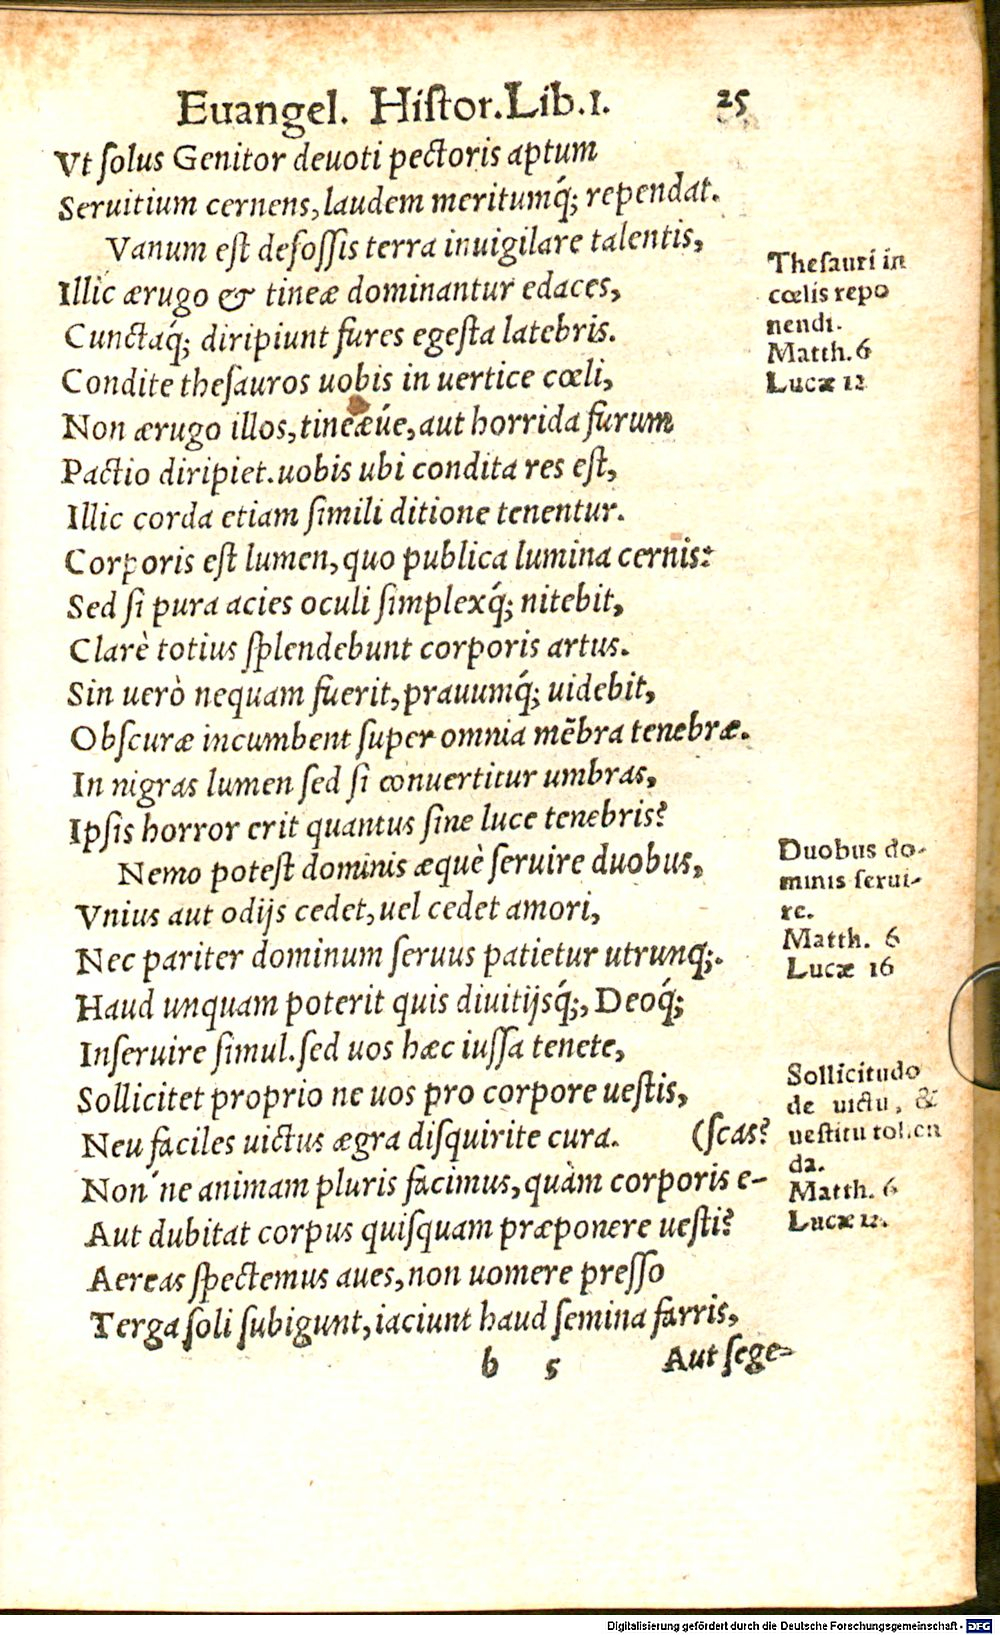 Euangel. Hiſtor. Lib. I. 25
Vt ſolus Genitor deuoti pectoris aptum
Seruitium cernens, laudem meritumq́; rependat.
Vanum eſt defoſſis terra inuigilare talentis,
Illic ærugo & tineæ dominantur edaces,
Cunctaq́; diripiunt fures egeſta latebris.
Condite theſauros uobis in uertice cœli,
Non ærugo illos, tineæúe, aut horrida furum
Pactio diripiet. uobis ubi condita res eſt,
Illic corda etiam ſimili ditione tenentur.
Corporis eſt lumen, quo publica lumina cernis:
Sed ſi pura acies oculi ſimplexq́; nitebit,
Clarè totius ſplendebunt corporis artus.
Sin uerò nequam fuerit, prauumq́; uidebit,
Obſcuræ incumbent ſuper omnia mẽbra tenebræ.
In nigras lumen ſed ſi conuertitur umbras,
Ipſis horror erit quantus ſine luce tenebris?
Nemo poteſt dominis æquè ſeruire duobus,
Vnius aut odijs cedet, uel cedet amori,
Nec pariter dominum ſeruus patietur utrunq;.
Haud unquam poterit quis diuitijsq́;, Deoq́;
Inſeruire ſimul. ſed uos hæc iuſſa tenete,
Sollicitet proprio ne uos pro corpore ueſtis,
Neu faciles uictus ægra diſquirite cura. (ſcas?
Non´ne animam pluris facimus, quàm corporis e-
Aut dubitat corpus quiſquam præponere ueſti?
Aereas ſpectemus aues, non uomere preſſo
Terga ſoli ſubigunt, iaciunt haud ſemina farris,
b 5 Aut ſege-
Theſauri in
cœlis repo
nendi.
Matth. 6
Lucæ 12
Duobus do-
minis ſerui-
re.
Matth. 6
Lucæ 16
Sollicitudo
de uictu, &
ueſtitu tollen
da.
Matth. 6
Lucæ 12.
Digitalisierung gefördert durch die Deutsche Forschungsgemeinschaft - DFG